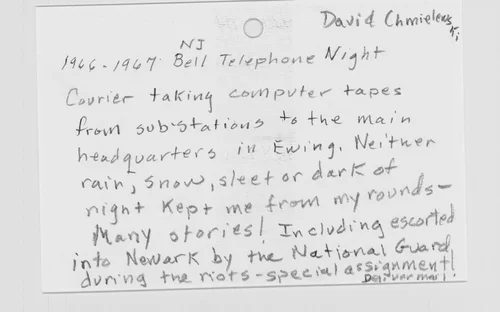 David Chmielewski
1966-1967 NJ Bell Telephone Night
Courier taking computer tapes
from sub-stations to the main
headquarters in Ewing. Neither
rain, snow, sleet or dark of
night kept me from my rounds-
Many stories! Including escorted
into Newark by the National Guard
during the riots-special assignment!
Deliver mail!